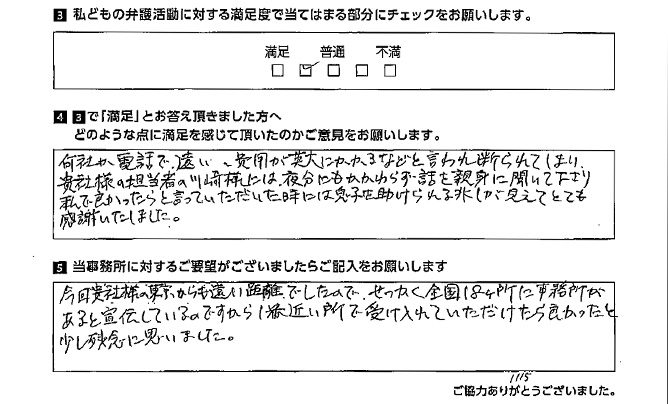 3 私どもの弁護活動に対する満足度で当てはまる部分にチェックをお願いします。
満足 普通 不満
□ ☑ □ □ □
4 3で「満足」とお答え頂きました方へ
どのような点に満足を感じて頂いたのかご意見をお願いします。
何社か電話で、遠い、費用が莫大にかかるなどと言われ断られてしまい、
貴社様の担当者の川崎様には、夜分にもかかわらず話を親身に聞いて下さり
私で良かったらと言っていただいた時には息子を助けられる兆しが見えてとても
感謝いたしました。
5 当事務所に対するご要望がございましたらご記入をお願いします
今回貴社様の東京からも遠い距離でしたので、せっかく全国18ヶ所に事務所が
あると宣伝しているのですから1番近い所で受け入れていただけたら良かったと
少し残念に思いました。
1115
ご協力ありがとうございました。